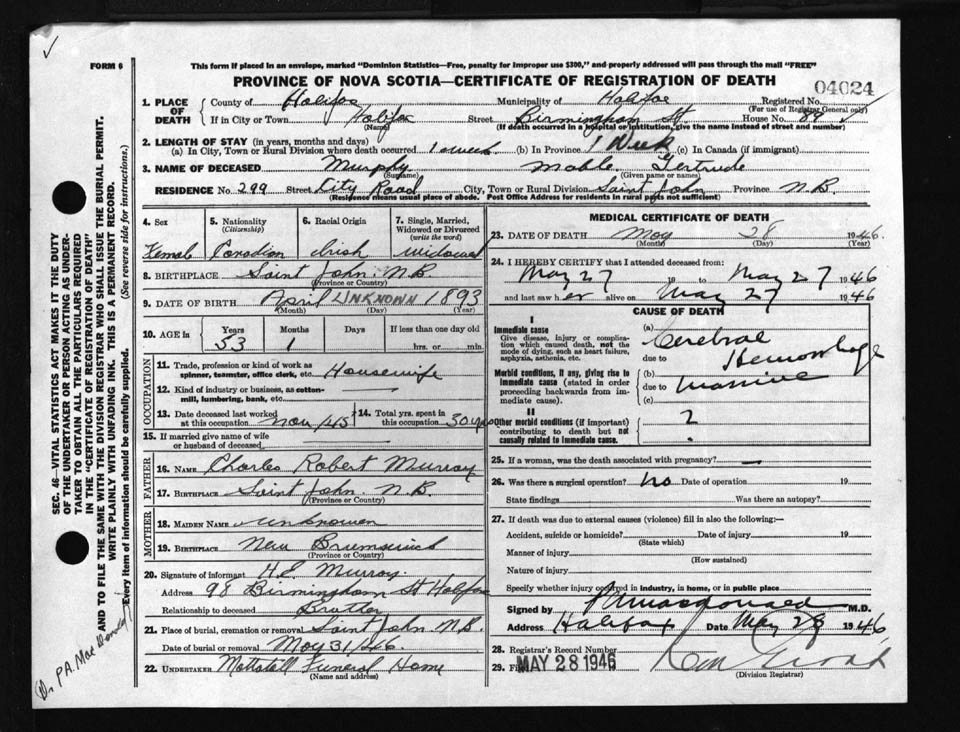 ✓
FORM 6
This form if placed in an envelope, marked "Dominion Statistics—Free, penalty for improper use $300," and properly addressed will pass through the mail "FREE"
PROVINCE OF NOVA SCOTIA—CERTIFICATE OF REGISTRATION OF DEATH
04024
1. PLACE OF DEATH { County of Halifax Municipality of Halifax Registered No.
(For use of Registrar General only)
If in City or Town Halifax Street Birmingham St. House No. 89 ✓
(Name) (If death occurred in a hospital or institution, give the name instead of street and number)
2. LENGTH OF STAY (in years, months and days)
(a) In City, Town or Rural Division where death occurred 1 week (b) In Province 1 Week (c) In Canada (if immigrant)
3. NAME OF DECEASED Murphy Mable Gertrude
(Surname) (Given name or names)
RESIDENCE No. 299 Street City Road City, Town or Rural Division Saint John Province N.B.
(Residence means usual place of abode. Post Office Address for residents in rural parts not sufficient)
4. Sex 5. Nationality (Citizenship) 6. Racial Origin 7. Single, Married, Widowed or Divorced (write the word)
Female Canadian Irish Widowed
8. BIRTHPLACE Saint John N.B.
(Province or Country)
9. DATE OF BIRTH April UNKNOWN 1893
(Month) (Day) (Year)
10. AGE in { Years Months Days If less than one day old
53 1 hrs. or min.
OCCUPATION
11. Trade, profession or kind of work as spinner, teamster, office clerk, etc. Housewife
12. Kind of industry or business, as cotton-mill, lumbering, bank, etc. —
13. Date deceased last worked at this occupation Nov/45 14. Total yrs. spent in this occupation 30 yrs
15. If married give name of wife or husband of deceased
FATHER
16. NAME Charles Robert Murray
17. BIRTHPLACE Saint John N.B.
(Province or Country)
MOTHER
18. MAIDEN NAME Unknowen
19. BIRTHPLACE New Brunswick
(Province or Country)
20. Signature of informant H.E. Murray
Address 98 Birmingham St Halifax
Relationship to deceased Brother
21. Place of burial, cremation or removal Saint John N.B.
Date of burial or removal May 31/46.
22. UNDERTAKER Mattatall Funeral Home
(Name and address)
MEDICAL CERTIFICATE OF DEATH
23. DATE OF DEATH May 28 1946.
(Month) (Day) (Year)
24. I HEREBY CERTIFY that I attended deceased from:
May 27 19 to May 27 1946
and last saw her alive on May 27 1946
CAUSE OF DEATH
I
Immediate cause
Give disease, injury or complication which caused death, not the mode of dying, such as heart failure, asphyxia, asthenia, etc.
(a) Cerebral
due to Hemorrhage
Morbid conditions, if any, giving rise to immediate cause (stated in order proceeding backwards from immediate cause).
(b)
due to massive
(c)
II
Other morbid conditions (if important) contributing to death but not causally related to immediate cause.
?
25. If a woman, was the death associated with pregnancy? —
26. Was there a surgical operation? no Date of operation 19
State findings Was there an autopsy?
27. If death was due to external causes (violence) fill in also the following:—
Accident, suicide or homicide? Date of injury 19
(State which)
Manner of injury
(How sustained)
Nature of injury
Specify whether injury occurred in industry, in home, or in public place
Signed by PAMacdonald M.D.
Address Halifax Date May 28 1946
28. Registrar's Record Number
29. Filed MAY 28 1946
(Division Registrar)
SEC. 46—VITAL STATISTICS ACT MAKES IT THE DUTY
OF THE UNDERTAKER OR PERSON ACTING AS UNDER-
TAKER TO OBTAIN ALL THE PARTICULARS REQUIRED
IN THE "CERTIFICATE OF REGISTRATION OF DEATH"
AND TO FILE THE SAME WITH THE DIVISION REGISTRAR WHO SHALL ISSUE THE BURIAL PERMIT.
WRITE PLAINLY WITH UNFADING INK. THIS IS A PERMANENT RECORD.
Every item of information should be carefully supplied. (See reverse side for instructions.)
Dr. P.A. MacDonald